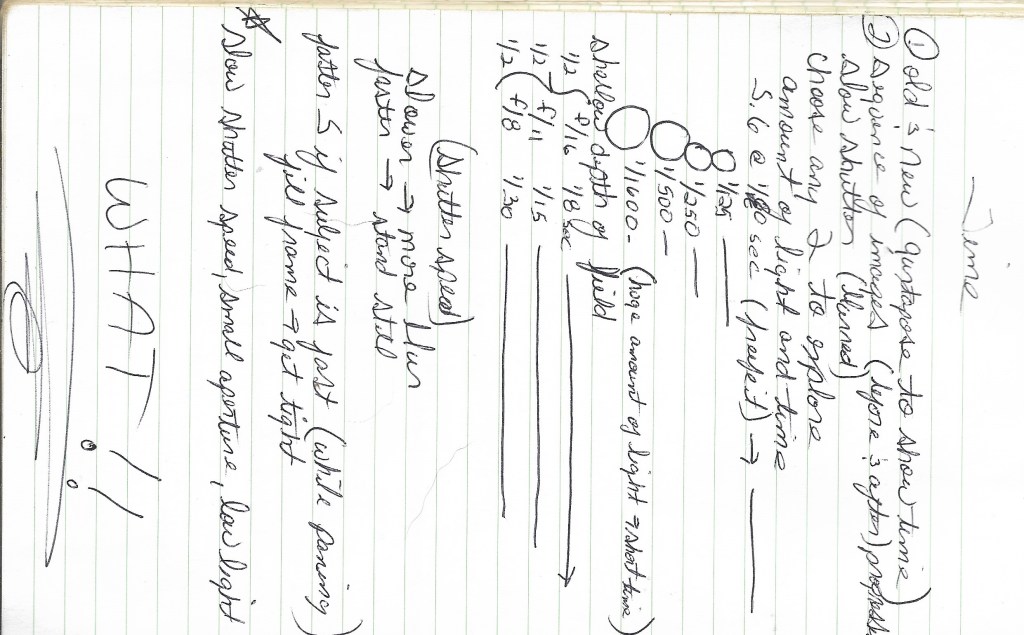 Time
① old & new (juxtapose to show time)
② sequence of images (before & after) progress
slow shutter (blurred)
choose any 2 to explore
amount of light and time
5.6 @ sec (perfect) →
1/125
1/250
1/500 -
1/1600 - (huge amount of light → short time)
shallow depth of field
1/2 { f/16 1/8 sec
1/2 { f/11 1/15
1/2 ( f/8 1/30
(shutter speed)
slower → more blur
faster → stand still
faster S if subject is fast (while panning)
fill frame → get tight
☆ slow shutter speed, small aperture, low light
WHAT !!